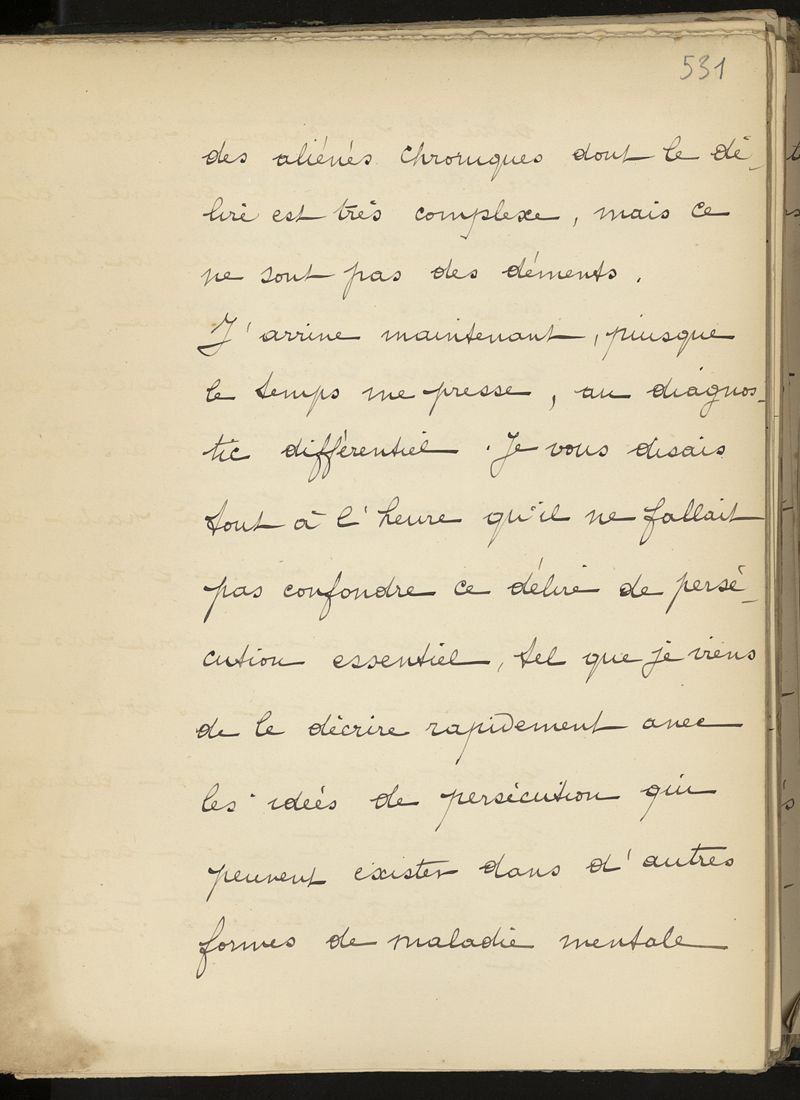 531
des aliénés chroniques dont le dé-
lire est très complexe, mais ce
ne sont pas des déments.
J'arrive maintenant, puisque
le temps me presse, au diagnos-
tic différentiel. Je vous disais
tout à l'heure qu'il ne fallait
pas confondre ce délire de persé-
cution essentiel, tel que je viens
de le décrire rapidement avec
les idées de persécution qui
peuvent exister dans d'autres
formes de maladie mentale